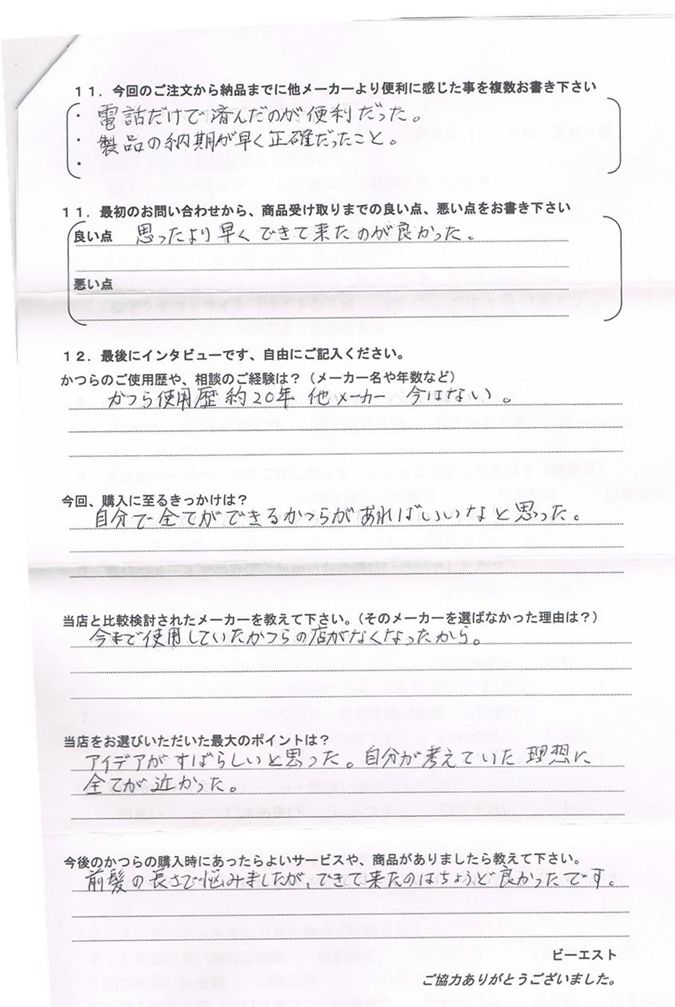 １１．今回のご注文から納品までに他メーカーより便利に感じた事を複数お書き下さい
・電話だけで済んだのが便利だった。
・製品の納期が早く正確だったこと。
・
１１．最初のお問い合わせから、商品受け取りまでの良い点、悪い点をお書き下さい
良い点　思ったより早くできて来たのが良かった。
悪い点
１２．最後にインタビューです、自由にご記入ください。
かつらのご使用歴や、相談のご経験は？（メーカー名や年数など）
かつら使用歴 約20年 他メーカー 今はない。
今回、購入に至るきっかけは？
自分で全てができるかつらがあればいいなと思った。
当店と比較検討されたメーカーを教えて下さい。（そのメーカーを選ばなかった理由は？）
今まで使用していたかつらの店がなくなったから。
当店をお選びいただいた最大のポイントは？
アイデアがすばらしいと思った。自分が考えていた理想に
全てが近かった。
今後のかつらの購入時にあったらよいサービスや、商品がありましたら教えて下さい。
前髪の長さで悩みましたが、できて来たのはちょうど良かったです。
ビーエスト
ご協力ありがとうございました。